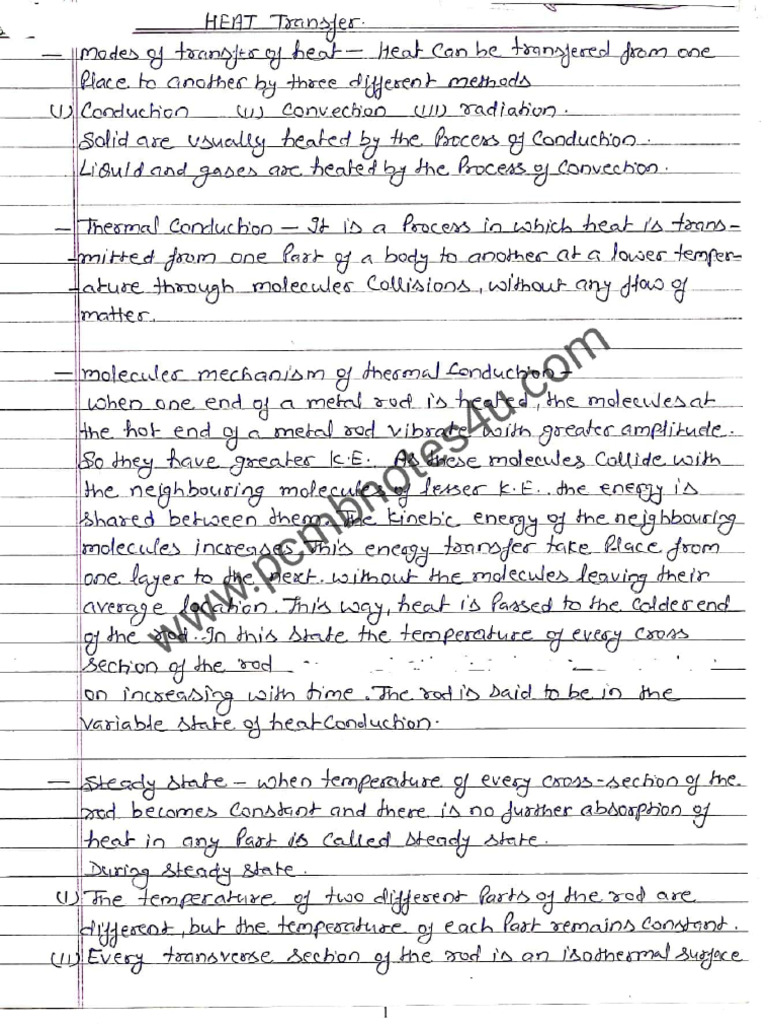 HEAT Transfer.
– Modes of transfer of heat – Heat Can be transfered from one
Place to another by three different methods
(I) Conduction (II) Convection (III) radiation.
Solid are usually heated by the Process of Conduction.
Liquid and gases are heated by the Process of Convection.
– Thermal Conduction – It is a Process in which heat is trans-
-mitted from one Part of a body to another at a lower temper-
-ature through molecules Collisions, without any flow of
matter.
– Molecules mechanism of thermal Conduction –
When one end of a metal rod is heated, the molecules at
the hot end of a metal rod vibrate with greater amplitude.
So they have greater K.E. As these molecules Collide with
the neighbouring molecules of lesser K.E. the energy is
shared between them. The kinetic energy of the neighbouring
molecules increases This energy transfer take Place from
one layer to the next. without the molecules leaving their
average location. This way, heat is Passed to the Colder end
of the rod. In this state the temperature of every cross
section of the rod
on increasing with time. The rod is said to be in the
variable state of heat Conduction.
– Steady State – When temperature of every cross-section of the
rod becomes Constant and there is no further absorption of
heat in any Part is Called steady state.
During steady state.
(I) The temperature of two different Parts of the rod are
different, but the temperature of each Part remains Constant.
(II) Every transverse section of the rod is an isothermal surface
1
www.pcmbnotes4u.com